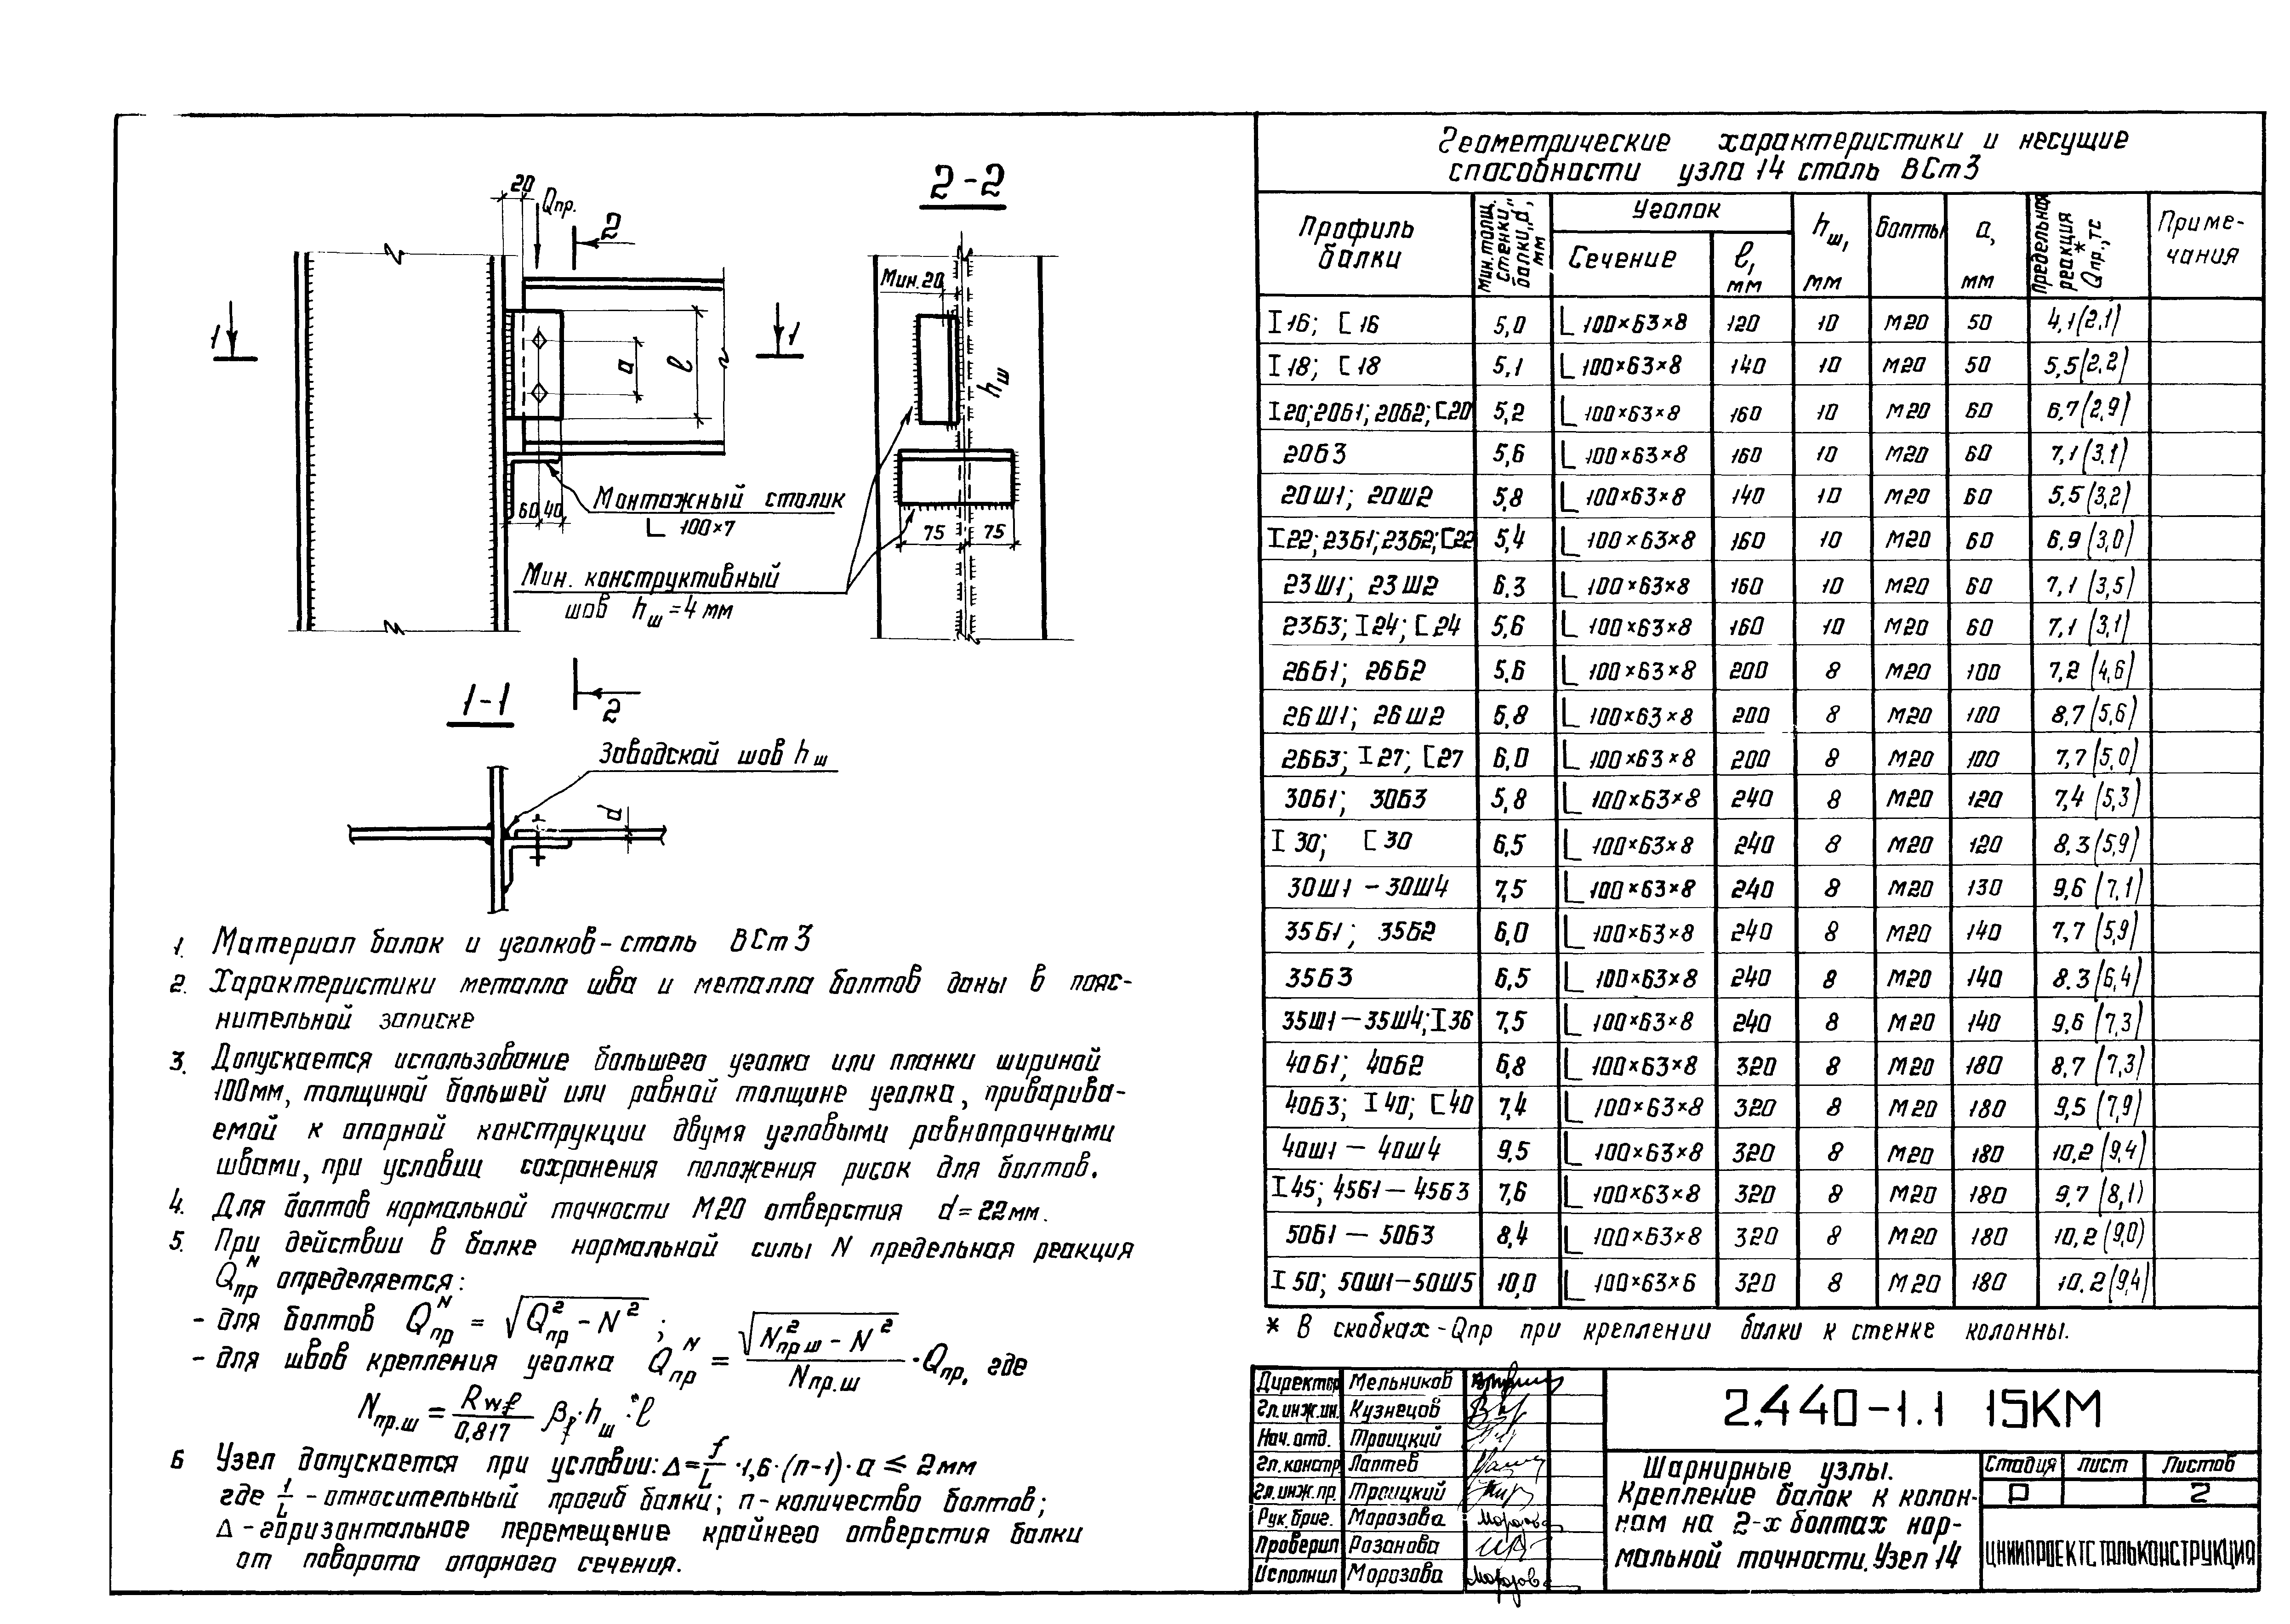 20
Qпр.
2
2-2
1
1
a
l
Мин. 20
hш
60 40
Монтажный столик
L 100×7
75 75
Мин. конструктивный
шов hш = 4 мм
1-1
2
Заводской шов hш
d
1. Материал балок и уголков - сталь ВСт3
2. Характеристики металла шва и металла болтов даны в пояс-
нительной записке
3. Допускается использование большего уголка или планки шириной
100мм, толщиной большей или равной толщине уголка, приварива-
емой к опорной конструкции двумя угловыми равнопрочными
швами, при условии сохранения положения рисок для болтов.
4. Для болтов нормальной точности М20 отверстия d=22мм.
5. При действии в балке нормальной силы N предельная реакция
Qпр^N определяется:
- для болтов Qпр^N = √(Qпр² - N²);
- для швов крепления уголка Qпр^N = √(Nпр.ш² - N²) / Nпр.ш · Qпр, где
Nпр.ш = Rwf / 0,817 βf · hш · l
6 Узел допускается при условии: Δ = f/L · 1,6 · (n-1) · a ≤ 2мм
где f/L - относительный прогиб балки; n - количество болтов;
Δ - горизонтальное перемещение крайнего отверстия балки
от поворота опорного сечения.
Геометрические характеристики и несущие
способности узла 14 сталь ВСт3
Профиль балки | Мин. толщ. стенки балки „d”, мм | Уголок | hш, мм | Болты | a, мм | Предельная реакция Qпр.*, тс | Приме-чания
Сечение | l, мм
I 16; [ 16 | 5,0 | L 100×63×8 | 120 | 10 | М20 | 50 | 4,1 (2,1)
I 18; [ 18 | 5,1 | L 100×63×8 | 140 | 10 | М20 | 50 | 5,5 (2,2)
I 20; 20Б1; 20Б2; [20 | 5,2 | L 100×63×8 | 160 | 10 | М20 | 60 | 6,7 (2,9)
20Б3 | 5,6 | L 100×63×8 | 160 | 10 | М20 | 60 | 7,1 (3,1)
20Ш1; 20Ш2 | 5,8 | L 100×63×8 | 140 | 10 | М20 | 60 | 5,5 (3,2)
I 22; 23Б1; 23Б2; [22 | 5,4 | L 100×63×8 | 160 | 10 | М20 | 60 | 6,9 (3,0)
23Ш1; 23Ш2 | 6,3 | L 100×63×8 | 160 | 10 | М20 | 60 | 7,1 (3,5)
23Б3; I 24; [ 24 | 5,6 | L 100×63×8 | 160 | 10 | М20 | 60 | 7,1 (3,1)
26Б1; 26Б2 | 5,6 | L 100×63×8 | 200 | 8 | М20 | 100 | 7,2 (4,6)
26Ш1; 26Ш2 | 6,8 | L 100×63×8 | 200 | 8 | М20 | 100 | 8,7 (5,6)
26Б3; I 27; [ 27 | 6,0 | L 100×63×8 | 200 | 8 | М20 | 100 | 7,7 (5,0)
30Б1; 30Б3 | 5,8 | L 100×63×8 | 240 | 8 | М20 | 120 | 7,4 (5,3)
I 30; [ 30 | 6,5 | L 100×63×8 | 240 | 8 | М20 | 120 | 8,3 (5,9)
30Ш1 - 30Ш4 | 7,5 | L 100×63×8 | 240 | 8 | М20 | 130 | 9,6 (7,1)
35Б1; 35Б2 | 6,0 | L 100×63×8 | 240 | 8 | М20 | 140 | 7,7 (5,9)
35Б3 | 6,5 | L 100×63×8 | 240 | 8 | М20 | 140 | 8,3 (6,4)
35Ш1 - 35Ш4; I 36 | 7,5 | L 100×63×8 | 240 | 8 | М20 | 140 | 9,6 (7,3)
40Б1; 40Б2 | 6,8 | L 100×63×8 | 320 | 8 | М20 | 180 | 8,7 (7,3)
40Б3; I 40; [ 40 | 7,4 | L 100×63×8 | 320 | 8 | М20 | 180 | 9,5 (7,9)
40Ш1 - 40Ш4 | 9,5 | L 100×63×8 | 320 | 8 | М20 | 180 | 10,2 (9,4)
I 45; 45Б1 - 45Б3 | 7,6 | L 100×63×8 | 320 | 8 | М20 | 180 | 9,7 (8,1)
50Б1 - 50Б3 | 8,4 | L 100×63×8 | 320 | 8 | М20 | 180 | 10,2 (9,0)
I 50; 50Ш1-50Ш5 | 10,0 | L 100×63×6 | 320 | 8 | М20 | 180 | 10.2 (9,4)
* В скобках - Qпр при креплении балки к стенке колонны.
Директор Мельников
Гл.инж.ин. Кузнецов
Нач.отд. Троицкий
Гл.констр Лаптев
Гл.инж.пр Троицкий
Рук.бриг. Морозова
Проверил Розанова
Исполнил Морозова
2.440-1.1 15КМ
Шарнирные узлы.
Крепление балок к колон-
нам на 2-х болтах нор-
мальной точности. Узел 14
Стадия лист Листов
Р 2
ЦНИИПРОЕКТСТАЛЬКОНСТРУКЦИЯ